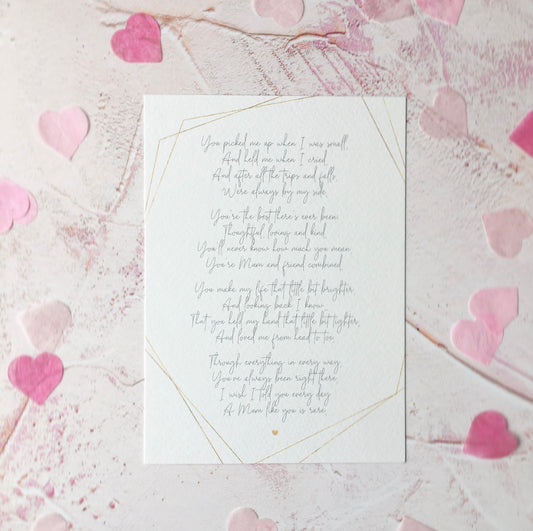 You picked me up when I was small,
And held me when I cried
And after all the trips and falls,
Were always by my side.
You're the best there's ever been:
Thoughtful loving and kind.
You'll never know how much you mean:
You're Mam and friend combined.
You make my life that little bit brighter
And looking back I know
That you held my hand that little bit tighter,
And loved me from head to toe.
Through everything in every way
You've always been right there
I wish I told you every day
A Mam like you is rare.